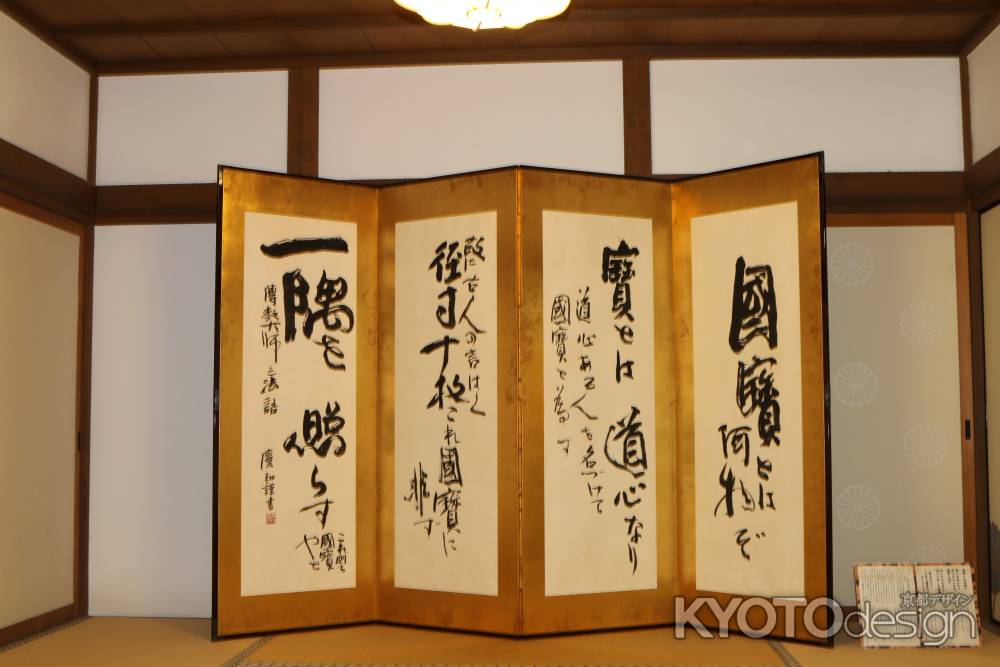 國寶とは
何物ぞ
寶とは道心なり
道心ある人を名づけて
國寶と為す
故に古人の言はく
径寸十枚これ國寶に
非ず
一隅を照らす
これ則ち
國寶
傳教大師之法語
謹書
京都デザイン
KYOTOdesign